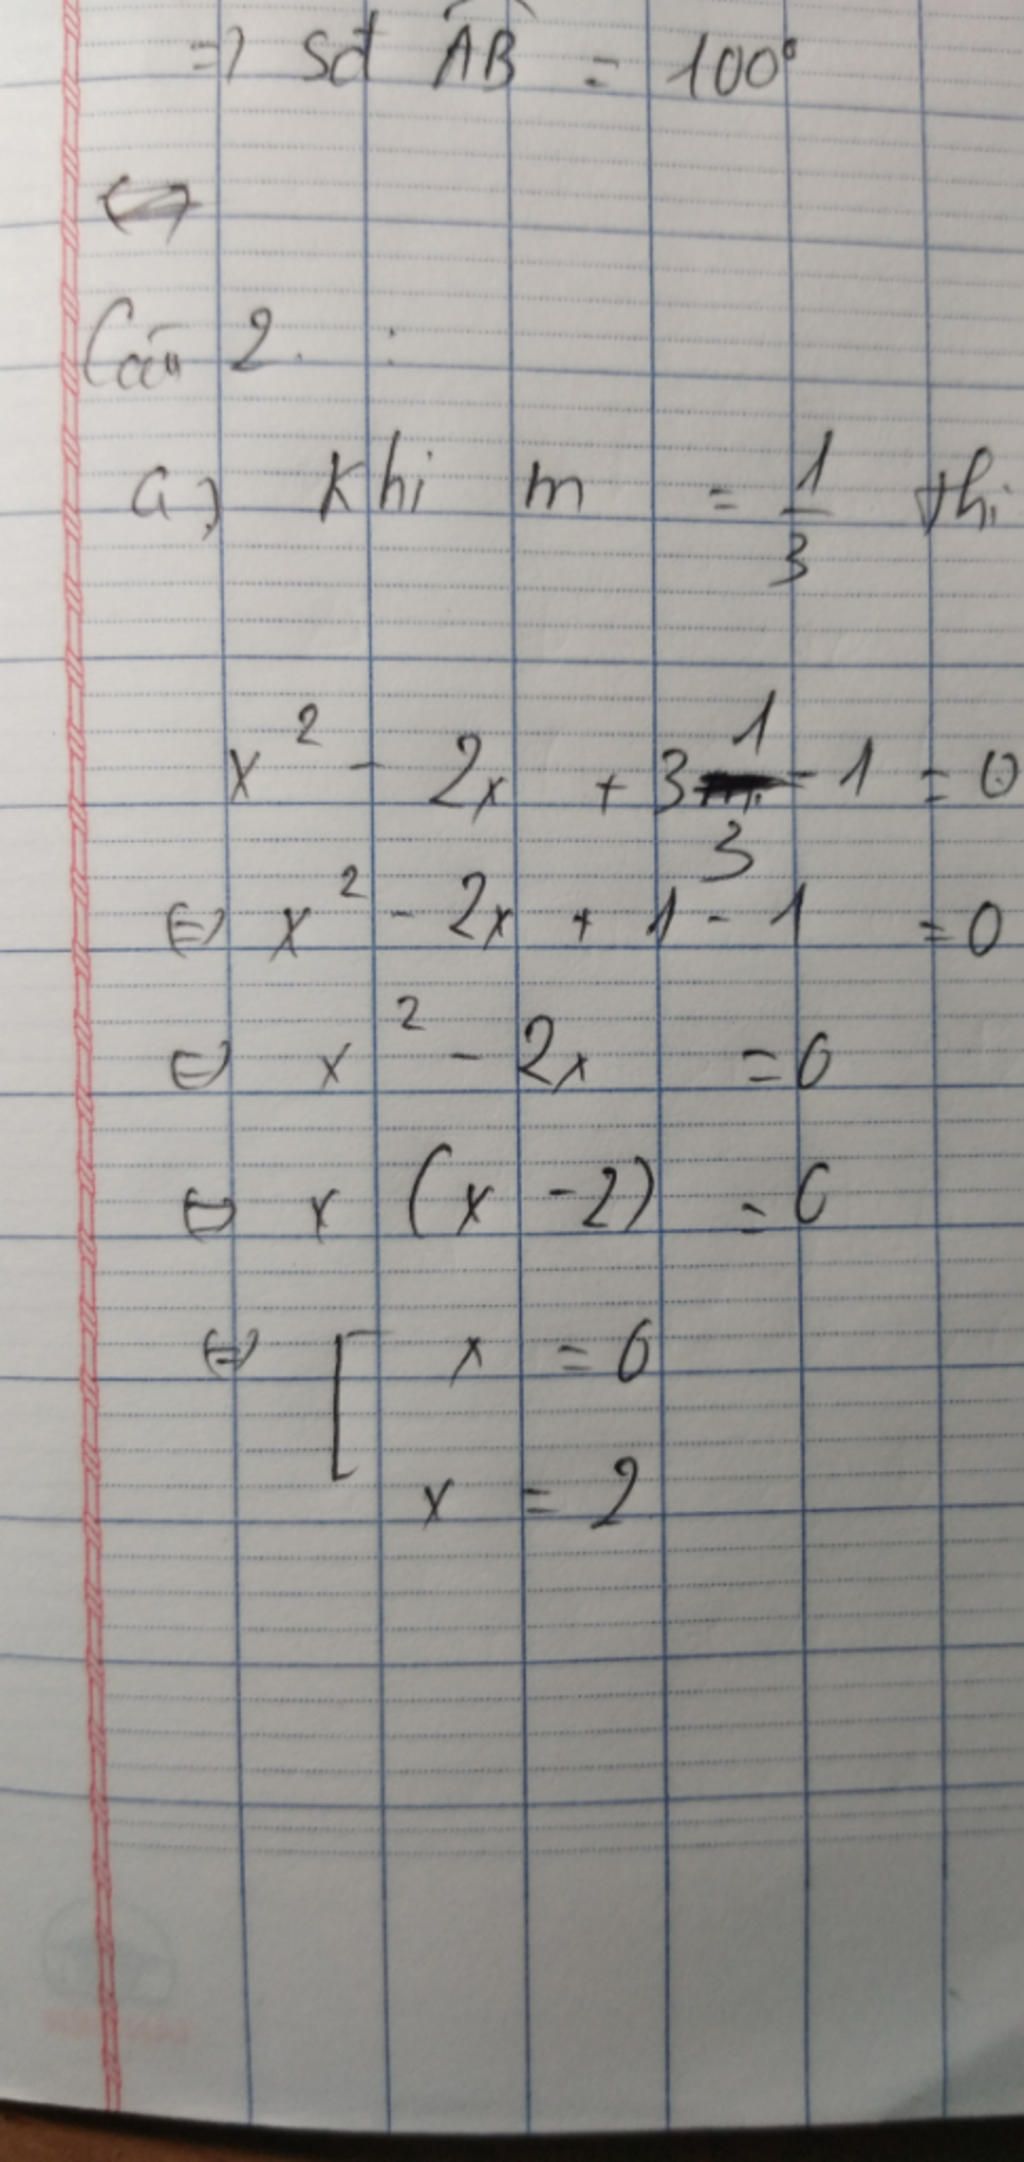 => sđ AB = 100°
<=>
Câu 2. :
a) Khi m = 1/3 thì
x² - 2x + 3 1/3 - 1 = 0
<=> x² - 2x + 1 - 1 = 0
<=> x² - 2x = 0
<=> x (x - 2) = 0
<=> [ x = 0
x = 2